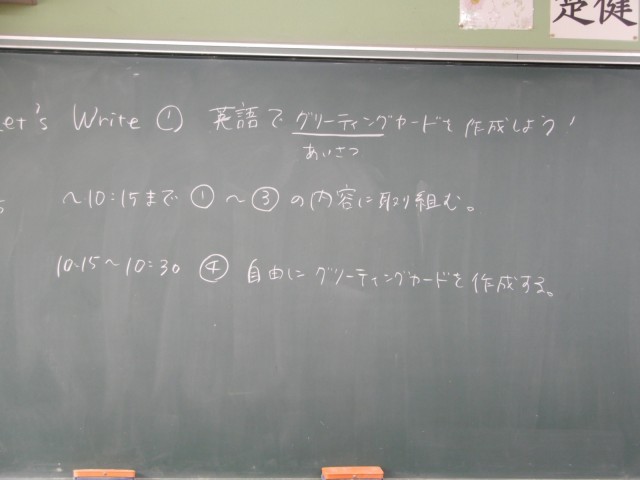 楚健
et's Write ① 英語でグリーティングカードを作成しよう!
あいさつ
～10:15まで ①～③の内容に取り組む。
10:15～10:30 ④ 自由にグリーティングカードを作成する。